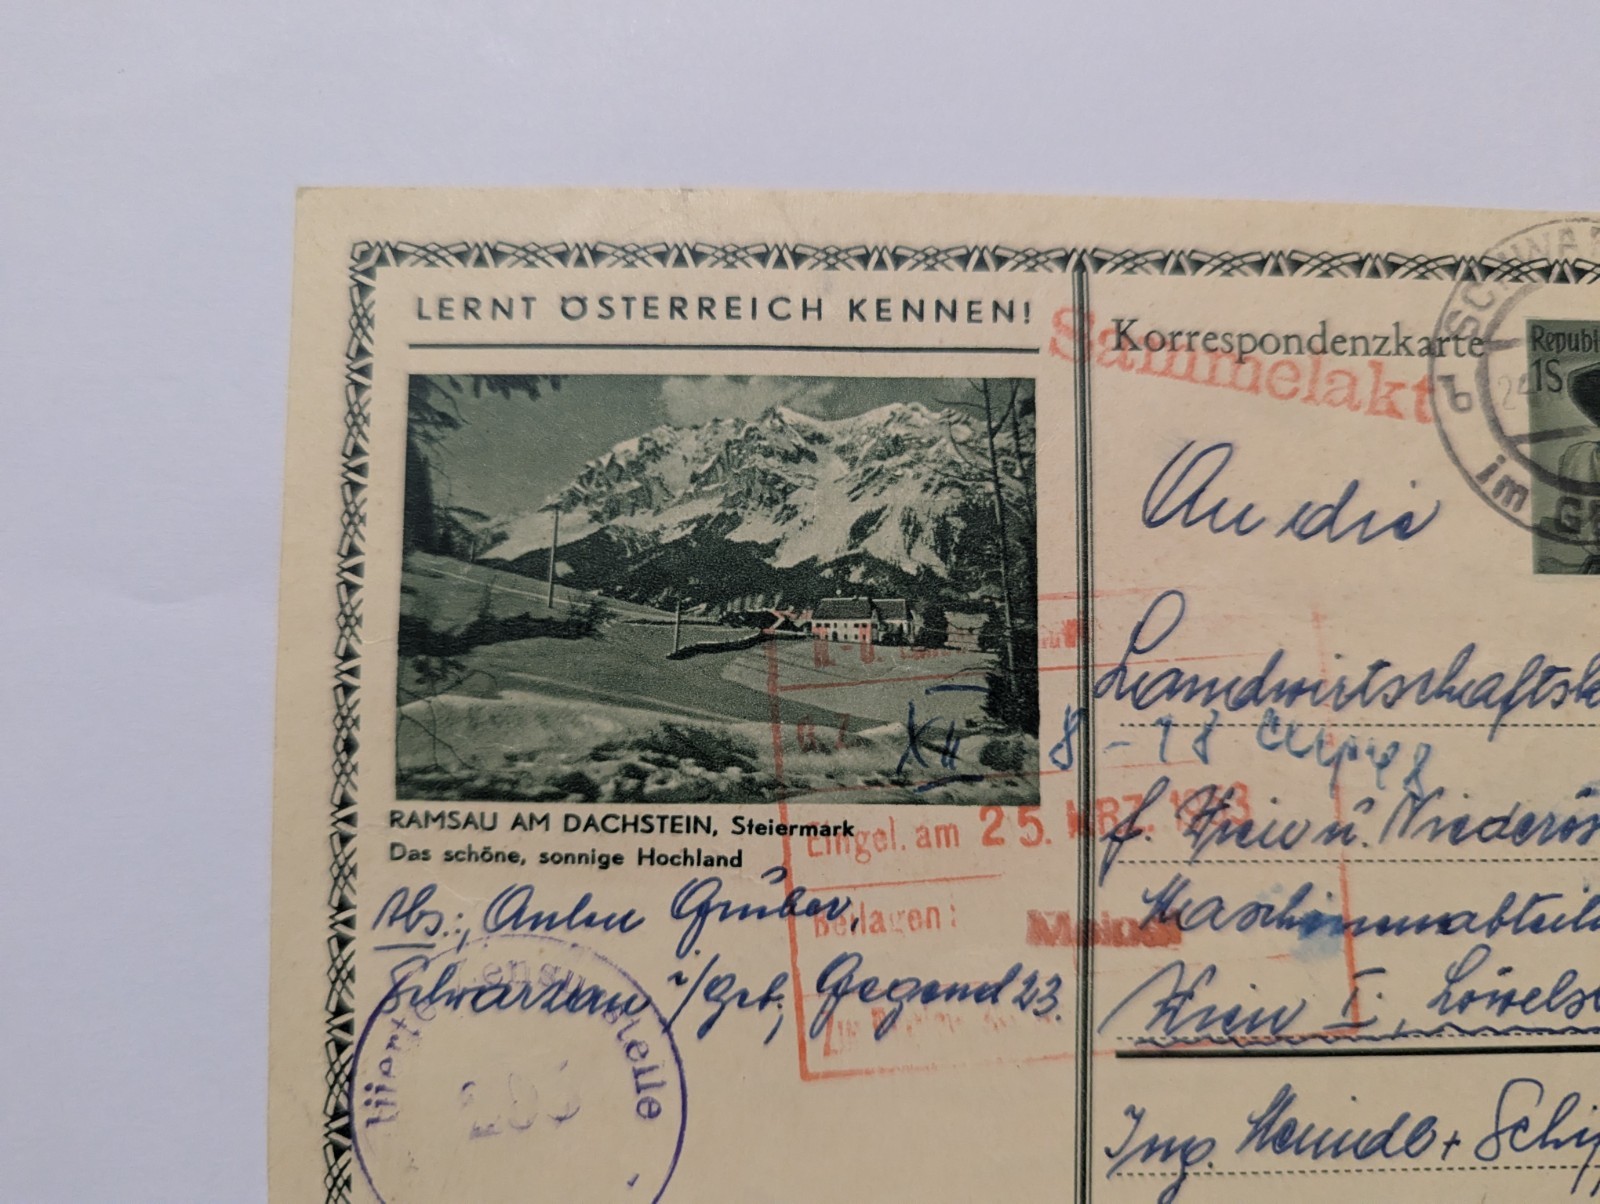 LERNT ÖSTERREICH KENNEN!
RAMSAU AM DACHSTEIN, Steiermark
Das schöne, sonnige Hochland
Abs.: Anton Gruber,
Schwarzau i/Geb., Gegend 23.
Korrespondenzkarte
Sammelakt
Republ
1S
SCHWARZ
im GE
b
An die
Landwirtschaftsk
f. Wien u. Niederös
Maschinenabteil
Wien I., Löwelst
Ing.
XII 8-18
Eingel. am 25. MRZ. 1953
Beilagen:
203